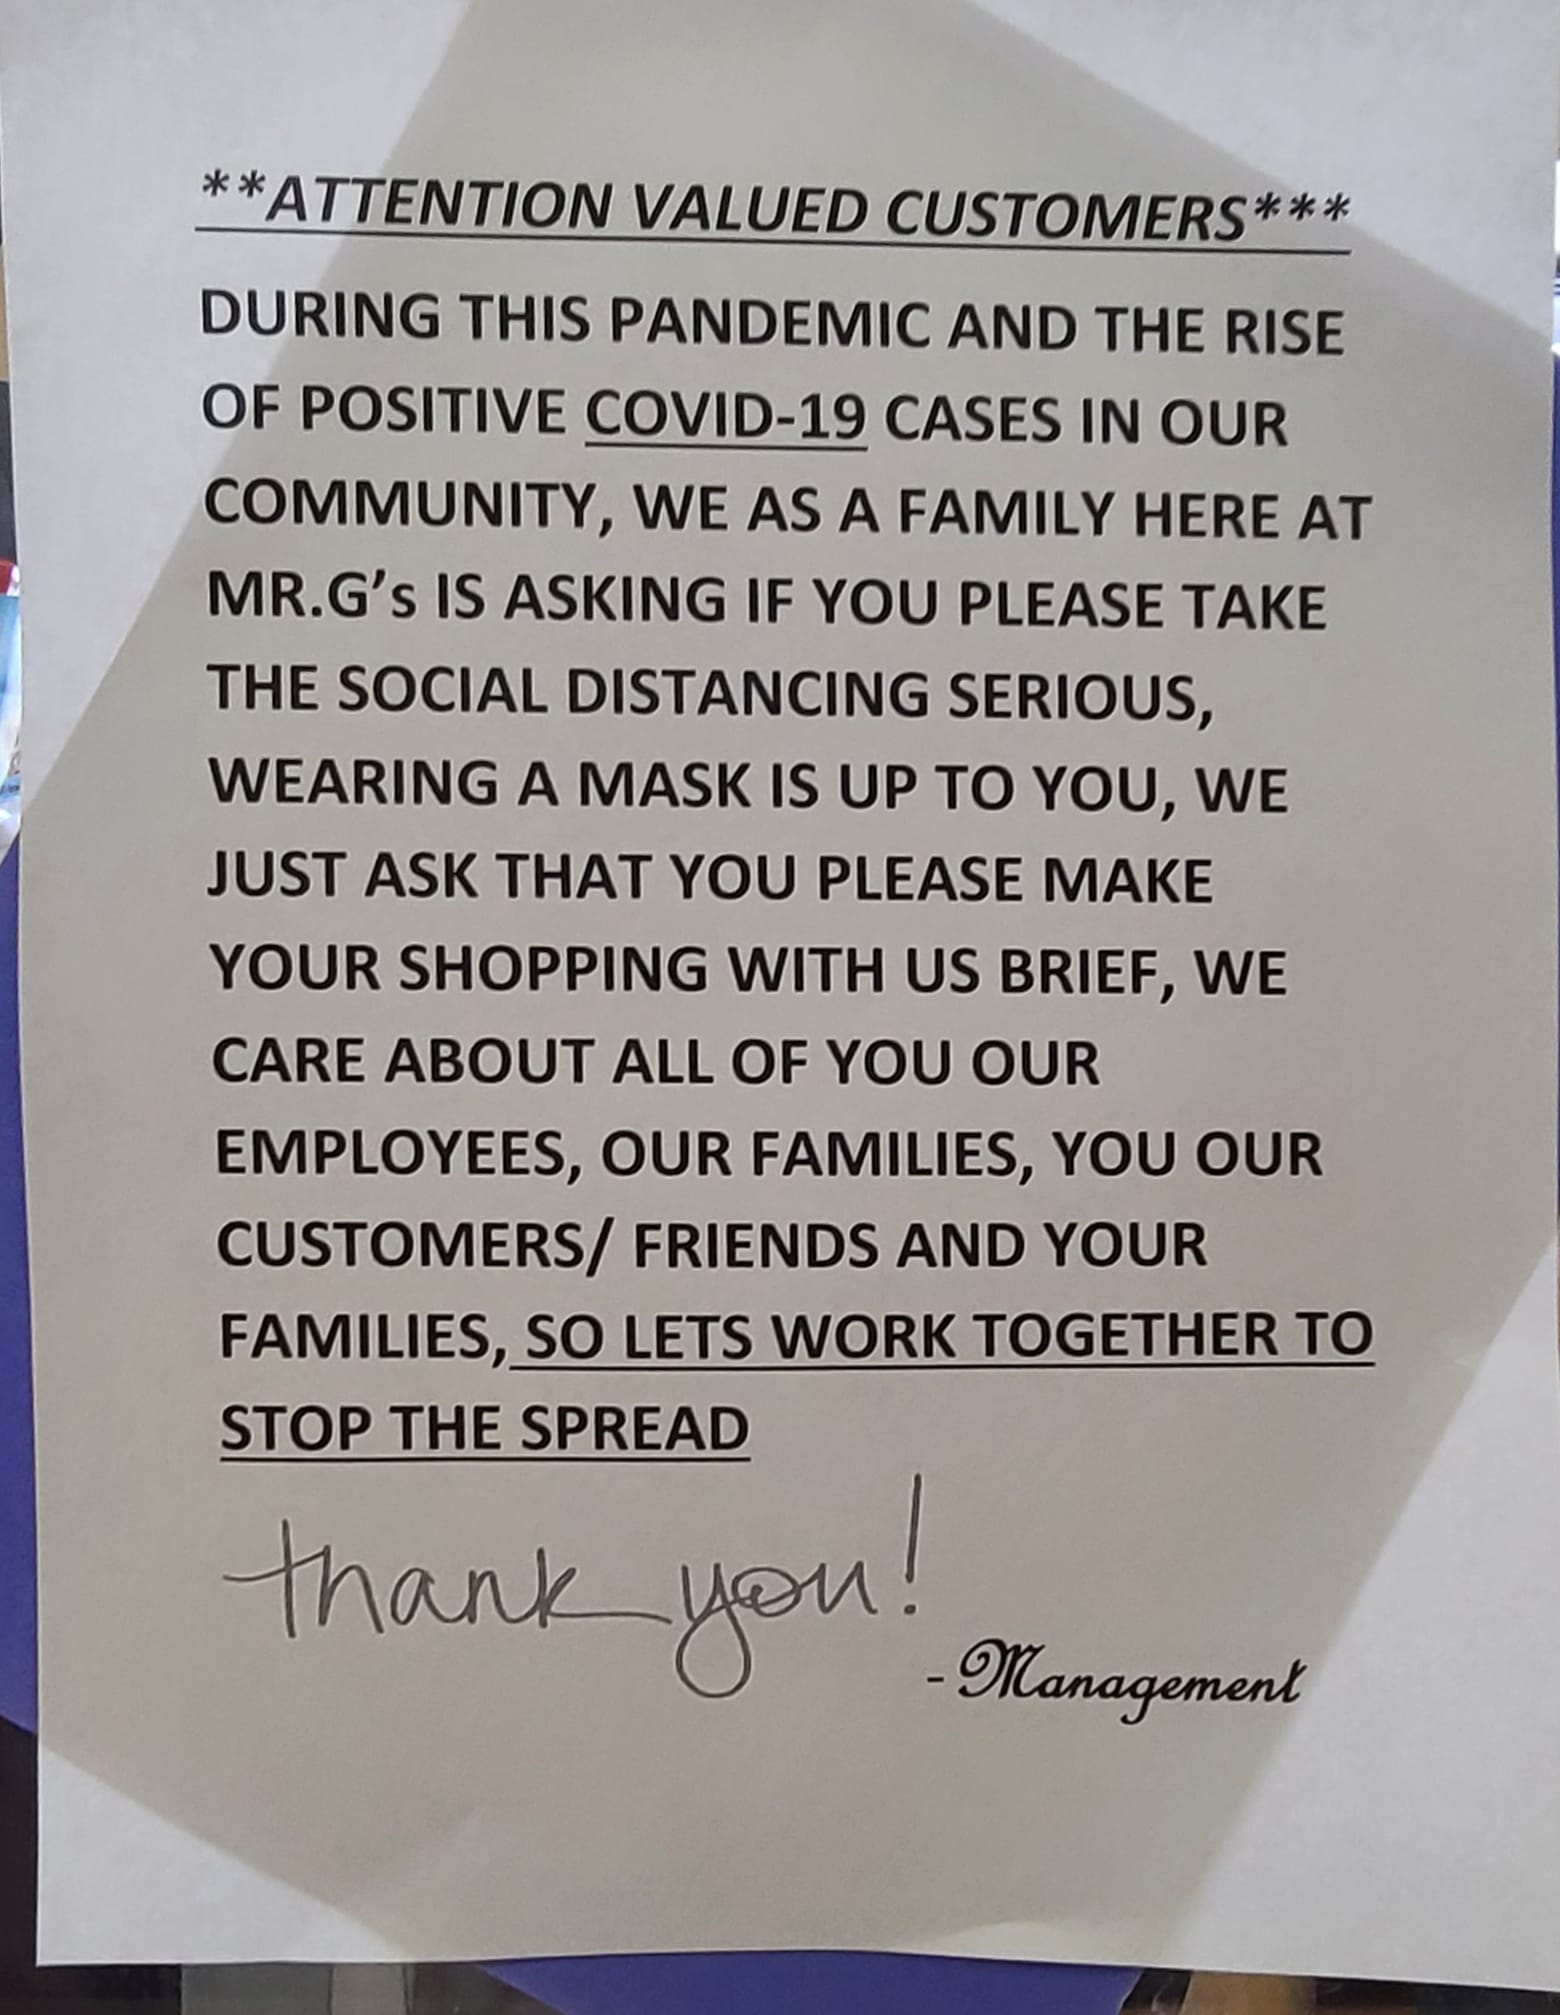 **ATTENTION VALUED CUSTOMERS***
DURING THIS PANDEMIC AND THE RISE
OF POSITIVE COVID-19 CASES IN OUR
COMMUNITY, WE AS A FAMILY HERE AT
MR.G's IS ASKING IF YOU PLEASE TAKE
THE SOCIAL DISTANCING SERIOUS,
WEARING A MASK IS UP TO YOU, WE
JUST ASK THAT YOU PLEASE MAKE
YOUR SHOPPING WITH US BRIEF, WE
CARE ABOUT ALL OF YOU OUR
EMPLOYEES, OUR FAMILIES, YOU OUR
CUSTOMERS/ FRIENDS AND YOUR
FAMILIES, SO LETS WORK TOGETHER TO
STOP THE SPREAD
thank you!
- Management